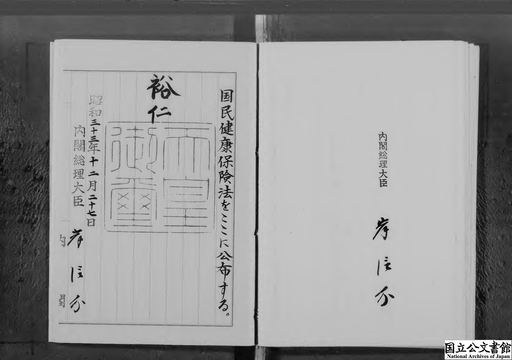 国民健康保険法をここに公布する。
裕仁
天皇御璽
昭和三十三年十二月二十七日
内閣総理大臣
岸信介
内閣
内閣総理大臣
岸信介
国立公文書館
National Archives of Japan